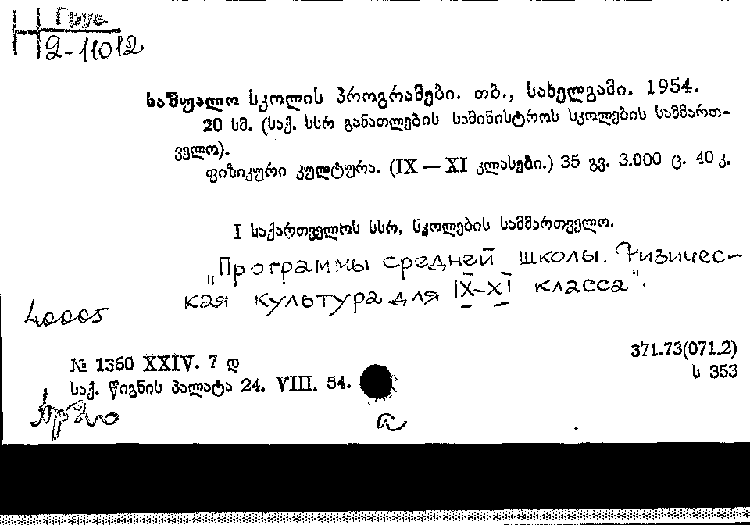 Груз
Н 2-11012
საშუალო სკოლის პროგრამები. თბ., სახელგამი. 1954.
20 სმ. (საქ. სსრ განათლების სამინისტროს სკოლების სამმართ-
ველო).
ფიზიკური კულტურა. (IX — XI კლასები.) 35 გვ. 3.000 ც. 40 კ.
I საქართველოს სსრ, სკოლების სამმართველო.
„Программы средней школы. Физичес-
кая культура для IX–XI класса".
40005
371.73(071.2)
ს 353
№ 1360 XXIV. 7 დ
საქ. წიგნის პალატა 24. VIII. 54.